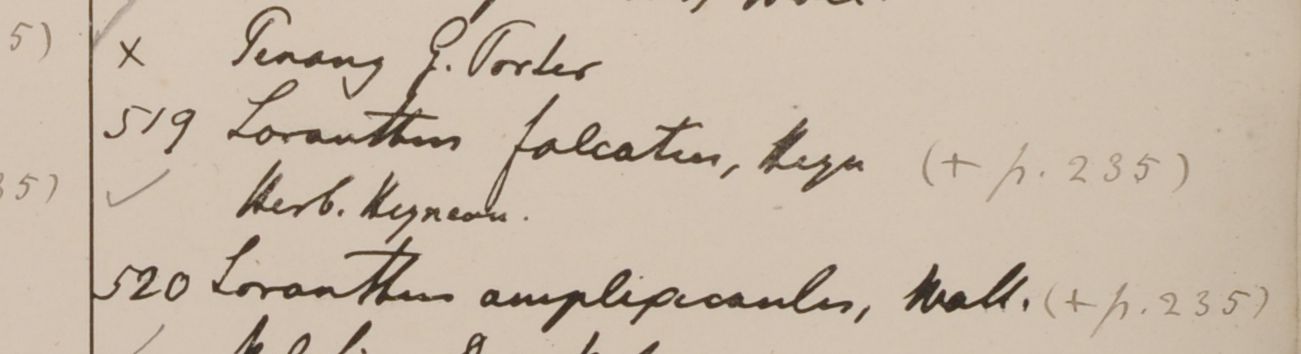 5)
x Penang G. Porter
519 Loranthus falcatus, Heyn (+ p. 235)
35) ✓ Herb. Heynean.
520 Loranthus amplexicaulis, Wall. (+ p. 235)